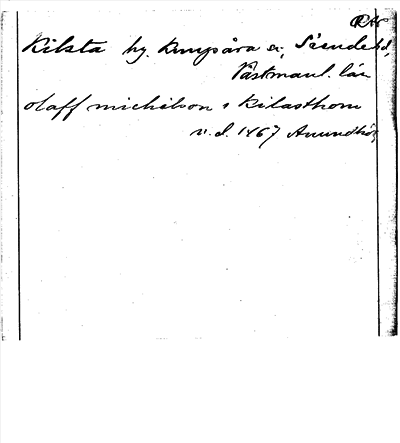 Kilsta by. Kungsåra sn, Siende hd,
Västmanl. län
olaff michelson i Kilasthom
v.d. 1467 Anundhög